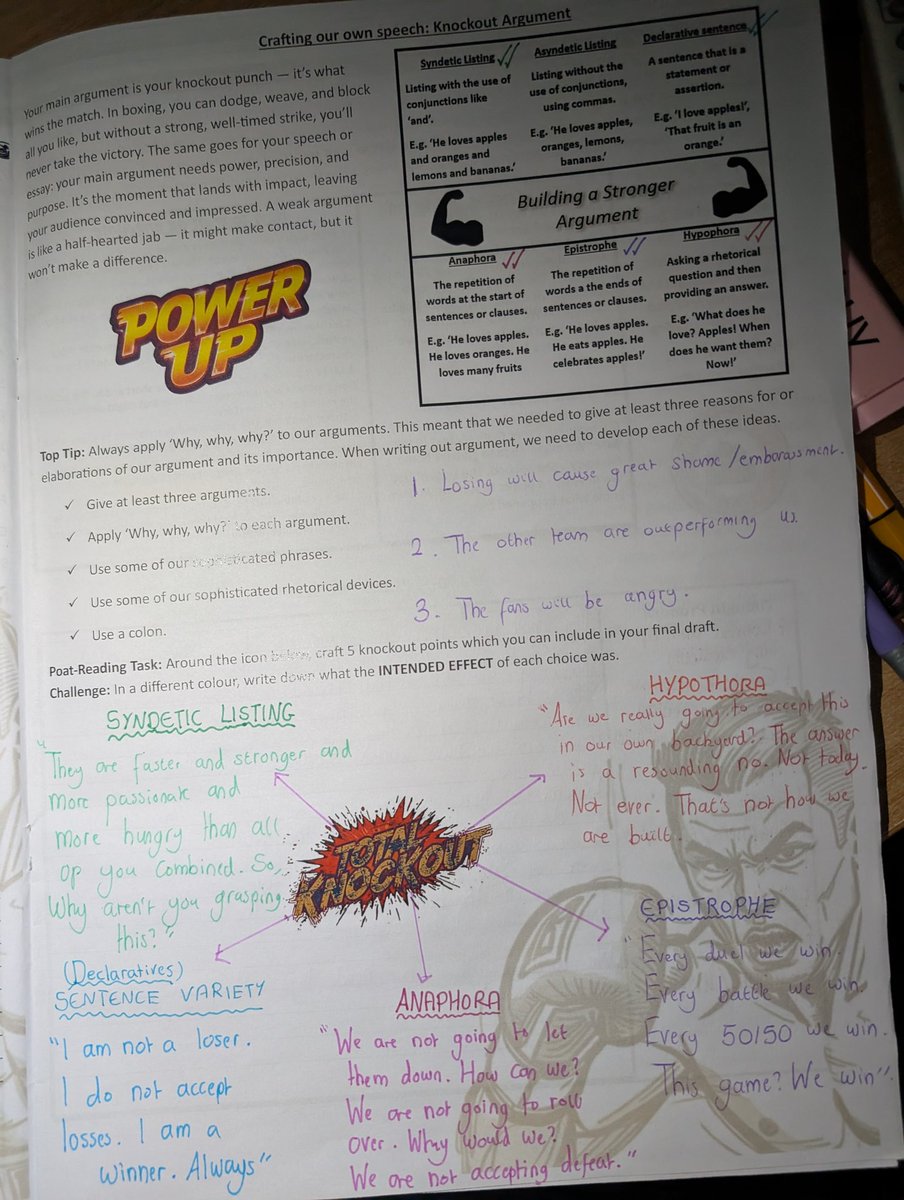 Crafting our own speech: Knockout Argument
Your main argument is your knockout punch — it's what
wins the match. In boxing, you can dodge, weave, and block
all you like, but without a strong, well-timed strike, you'll
never take the victory. The same goes for your speech or
essay: your main argument needs power, precision, and
purpose. It's the moment that lands with impact, leaving
your audience convinced and impressed. A weak argument
is like a half-hearted jab — it might make contact, but it
won't make a difference.
POWER
UP
Syndetic Listing
Listing with the use of
conjunctions like
'and'.
E.g. 'He loves apples
and oranges and
lemons and bananas.'
Asyndetic Listing
Listing without the
use of conjunctions,
using commas.
E.g. 'He loves apples,
oranges, lemons,
bananas.'
Declarative sentence
A sentence that is a
statement or
assertion.
E.g. 'I love apples!',
'That fruit is an
orange.'
Building a Stronger
Argument
Anaphora
The repetition of
words at the start of
sentences or clauses.
E.g. 'He loves apples.
He loves oranges. He
loves many fruits
Epistrophe
The repetition of
words a the ends of
sentences or clauses.
E.g. 'He loves apples.
He eats apples. He
celebrates apples!'
Hypophora
Asking a rhetorical
question and then
providing an answer.
E.g. 'What does he
love? Apples! When
does he want them?
Now!'
Top Tip: Always apply 'Why, why, why?' to our arguments. This meant that we needed to give at least three reasons for or
elaborations of our argument and its importance. When writing out argument, we need to develop each of these ideas.
✓ Give at least three arguments.
✓ Apply 'Why, why, why?' to each argument.
✓ Use some of our sophisticated phrases.
✓ Use some of our sophisticated rhetorical devices.
✓ Use a colon.
1. Losing will cause great shame/embarassment.
2. The other team are outperforming us.
3. The fans will be angry.
Poat-Reading Task: Around the icon below, craft 5 knockout points which you can include in your final draft.
Challenge: In a different colour, write down what the INTENDED EFFECT of each choice was.
SYNDETIC LISTING
"They are faster and stronger and
more passionate and
more hungry than all
op you combined. So,
Why aren't you grasping
this?"
HYPOTHORA
"Are we really going to accept this
in our own backyard? The answer
is a resounding no. Not today.
Not ever. That's not how we
are built.
TOTAL
KNOCKOUT
(Declaratives)
SENTENCE VARIETY
"I am not a loser.
I do not accept
losses. I am a
winner. Always"
ANAPHORA
"We are not going to let
them down. How can we?
We are not going to roll
over. Why would we?
We are not accepting defeat."
EPISTROPHE
"Every duel we win.
Every battle we win.
Every 50/50 we win.
This game? We win"